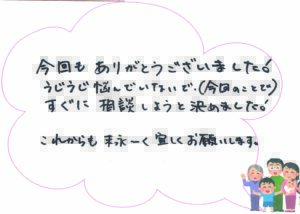 今回も ありがとうございました!
うじうじ悩んでいないで、(今回のことで)
すぐに 相談しようと決めました!
これからも 末永ーく 宜しくお願いします。